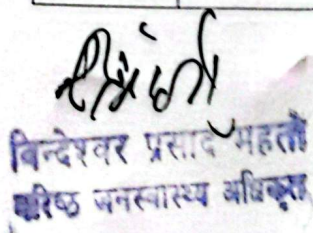 बिन्देश्वर प्रसाद महतो
बरिष्ठ जनस्वास्थ्य अधिकृत